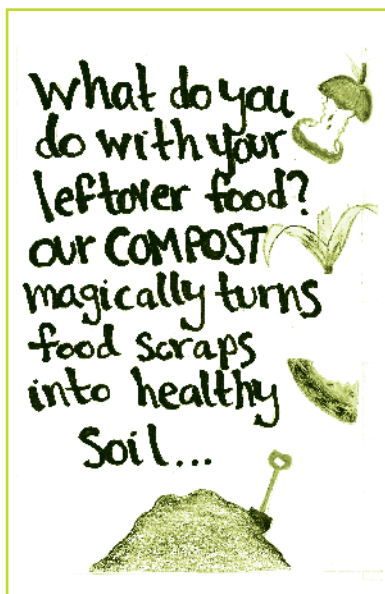 What do you
do with your
leftover food?
our COMPOST
magically turns
food scraps
into healthy
Soil...